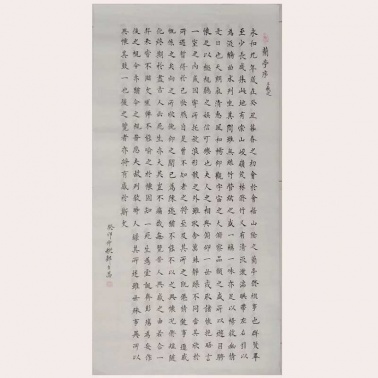 蘭亭序 王羲之
永和九年歲在癸丑暮春之初會於會稽山陰之蘭亭脩禊事也群賢畢
至少長咸集此地有崇山峻嶺茂林脩竹又有清流激湍映帶左右引以
為流觴曲水列坐其次雖無絲竹管絃之盛一觴一詠亦足以暢敘幽情
是日也天朗氣清惠風和暢仰觀宇宙之大俯察品類之盛所以遊目騁
懷足以極視聽之娛信可樂也夫人之相與俯仰一世或取諸懷抱悟言
一室之內或因寄所託放浪形骸之外雖趣舍萬殊靜躁不同當其欣於
所遇暫得於己快然自足不知老之將至及其所之既倦情隨事遷感
慨係之矣向之所欣俛仰之閒以為陳跡猶不能不以之興懷況脩短隨
化終期於盡古人云死生亦大矣豈不痛哉每覽昔人興感之由若合一
契未嘗不臨文嗟悼不能喻之於懷固知一死生為虛誕齊彭殤為妄作
後之視今亦由今之視昔悲夫故列敘時人錄其所述雖世殊事異所以
興懷其致一也後之覽者亦將有感於斯文